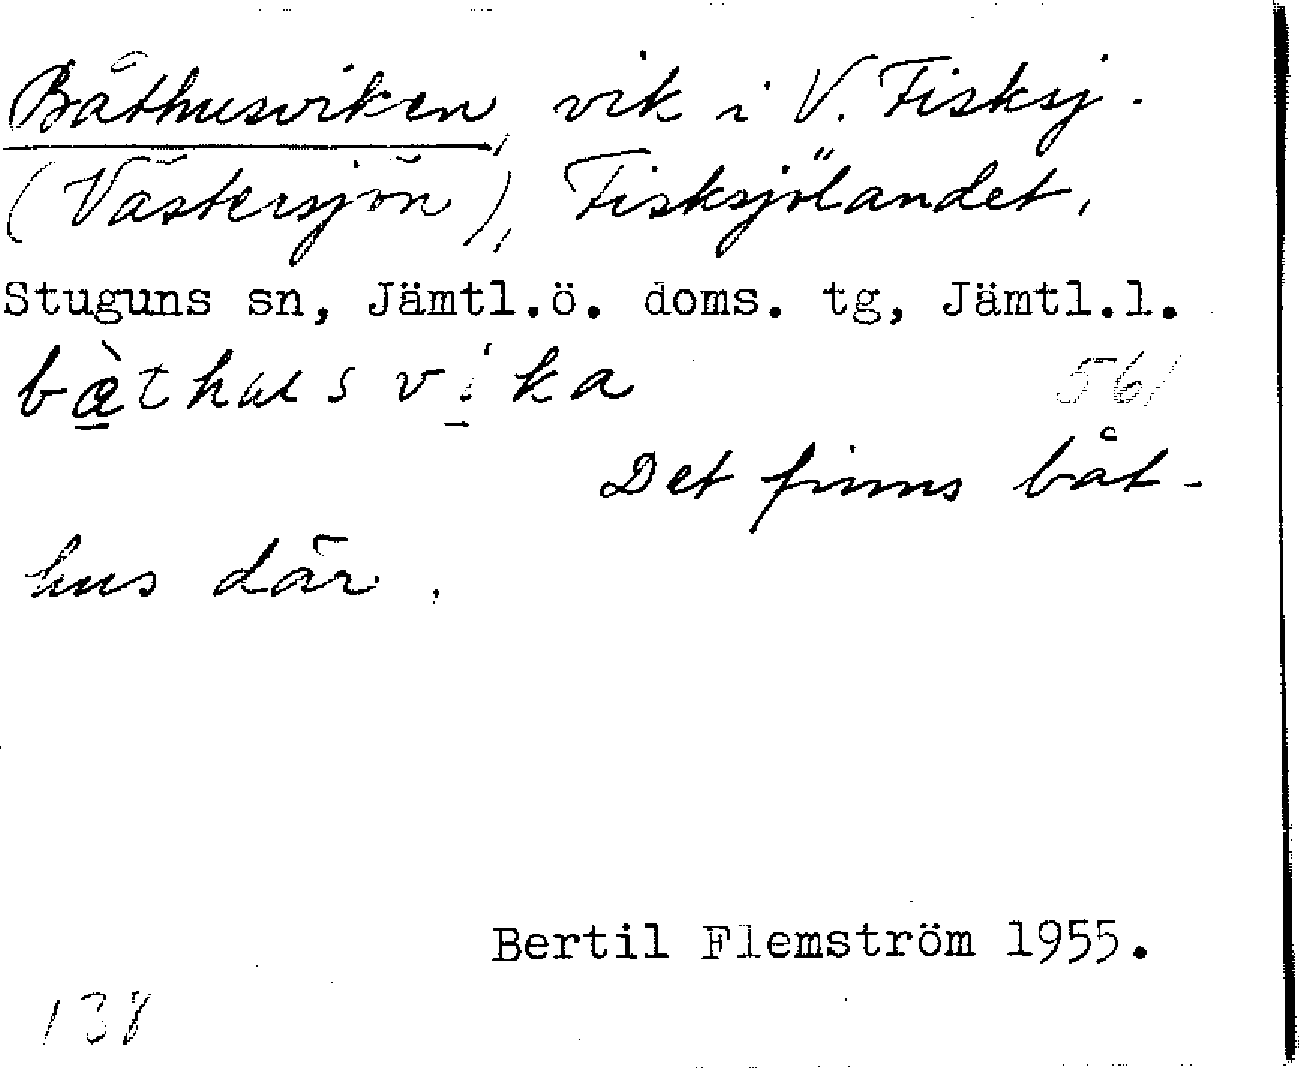 Båthusviken, vik i V. Fisksj.
(Västersjön), Fisksjölandet,
Stuguns sn, Jämtl.ö. doms. tg, Jämtl.l.
561
Det finns båt-
hus där.
Bertil Flemström 1955.
138